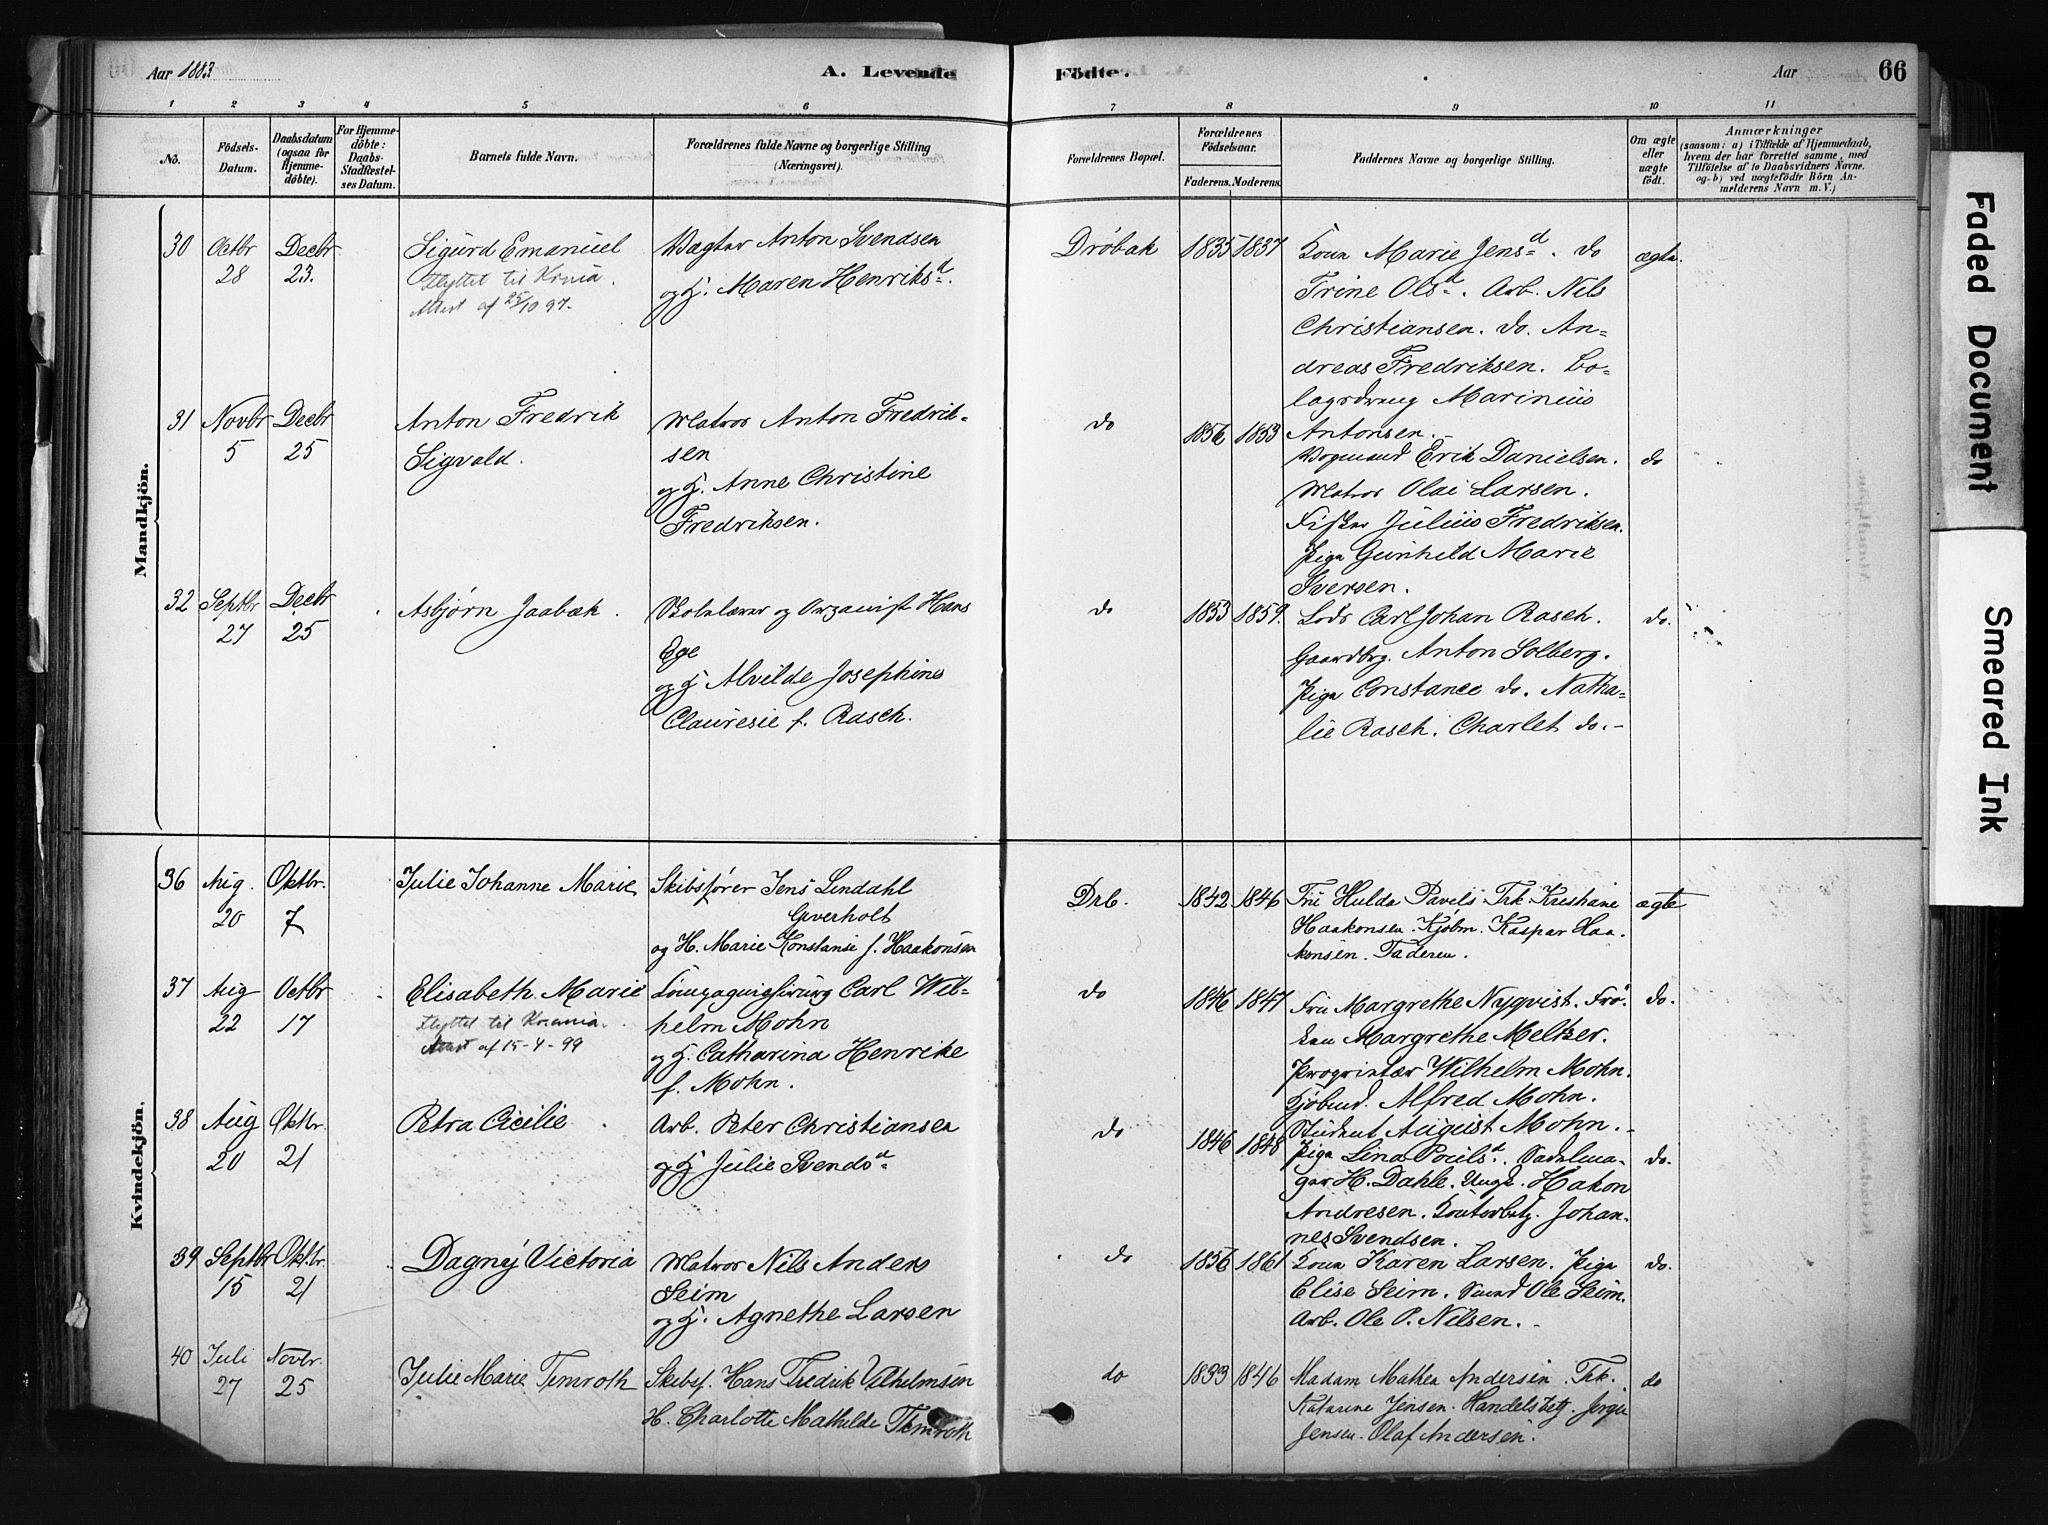 Aar 1883
A. Levende
Födte.
Aar
66
1 2 3 4 5 6 7 8 9 10 11
No.
Födsels-Datum.
Daabsdatum (ogsaa for Hjemmedöbte).
For Hjemmedöbte: Daabs-Stadfæstelses Datum.
Barnets fulde Navn.
Forældrenes fulde Navne og borgerlige Stilling (Næringsvei).
Forældrenes Bopæl.
Forældrenes Födselsaar.
Faderens. Moderens.
Faddernes Navne og borgerlige Stilling.
Om ægte eller uægte födt.
Anmærkninger
(saasom: a) i Tilfælde af Hjemmedaab,
hvem der har forrettet samme, med
Tilföielse af to Daabsvidners Navne.
og b) ved uægtefödte Börn An-
melderens Navn m. V.)
Mandkjön.
30 Octbr 28 Decbr 23.
Sigurd Emanuel
Flyttet til Krnia.
Attest af 25/10 97.
Vægter Anton Svendsen
og H. Maren Henriksd.
Dröbak 1835 1837
Kona Marie Jensd. do
Trine Olsd. Arb. Nils
Christiansen. do. An=
dreas Fredriksen. Bo-
lagsdreng Marinius
Antonsen.
ægte.
31 Novbr 5 Decbr 25
Anton Fredrik
Sigvald.
Matros Anton Fredrik-
sen
og H. Anne Christine
Fredriksen.
do 1856 1853
Vognmand Erik Danielsen.
Matros Olai Larsen.
Fisker Julius Fredriksen.
Pige Gunhild Marie
Iversen.
do
32 Septbr 27 Decbr 25
Asbjørn Jaabæk.
Skolelærer og Organist Hans
Ege
og H Alvilde Josephine
Clauresie f. Rasch.
do 1853 1859.
Lods Carl Johan Rasch.
Gaardbrg. Anton Solberg.
Pige Constance do. Natha-
lie Rasch. Charlet do.-
do.
Kvindekjön.
36 Aug. 20 Oktbr. 7
Julie Johanne Marie
Skibsfører Jens Lindahl
Gverholt
og H. Marie Konstansi f. Haakonsen
Drb. 1842 1846
Fru Hulda Pavels Frk Kristiane
Haakonsen. Kjøbm. Kaspar Haa-
konsen. Faderen.
ægte
37 Aug 22 Octbr 17
Elisabeth Marie
Flyttet til Krania.
Attest af 15-4-99
Compagnichirurg Carl Wil=
helm Mohn
og H. Catharina Henrike
f. Mohn.
do 1846 1847
Fru Margrethe Nyqvist. Frö-
ken Margrethe Meltzer.
Proprietær Wilhelm Mohn.
Kjöbmd. Alfred Mohn.
Student August Mohn.-
do.
38 Aug 20 Oktbr. 21
Petra Cicilie
Arb. Peter Christiansen
og H Julie Svendsd
do 1846 1848
Pige Lina Poulsd. Sadelma-
ger H. Dahle. Ungk. Hakon
Andresen. Kontorbetj. Johan-
nes Svendsen.
do.
39 Septbr 15 Oktbr. 21
Dagny Victoria
Matros Nils Anders
Seim
og H. Agnethe Larsen
do 1856 1861
Kona Karen Larsen. Pige
Elise Seim. Smed Ole Seim.
Arb. Ole P. Nilsen.-
do.
40 Juli 27 Novbr. 25
Julie Marie Temroth
Skibsf. Hans Fredrik Vilhelmsen
H. Charlotte Mathilde Temroth
do 1833 1846
Madam Mathea Andersen. Frk.
Katarine Jensen. Handelsbetj. Jørgen
Jensen. Olaf Andersen.
do
Faded Document
Smeared Ink